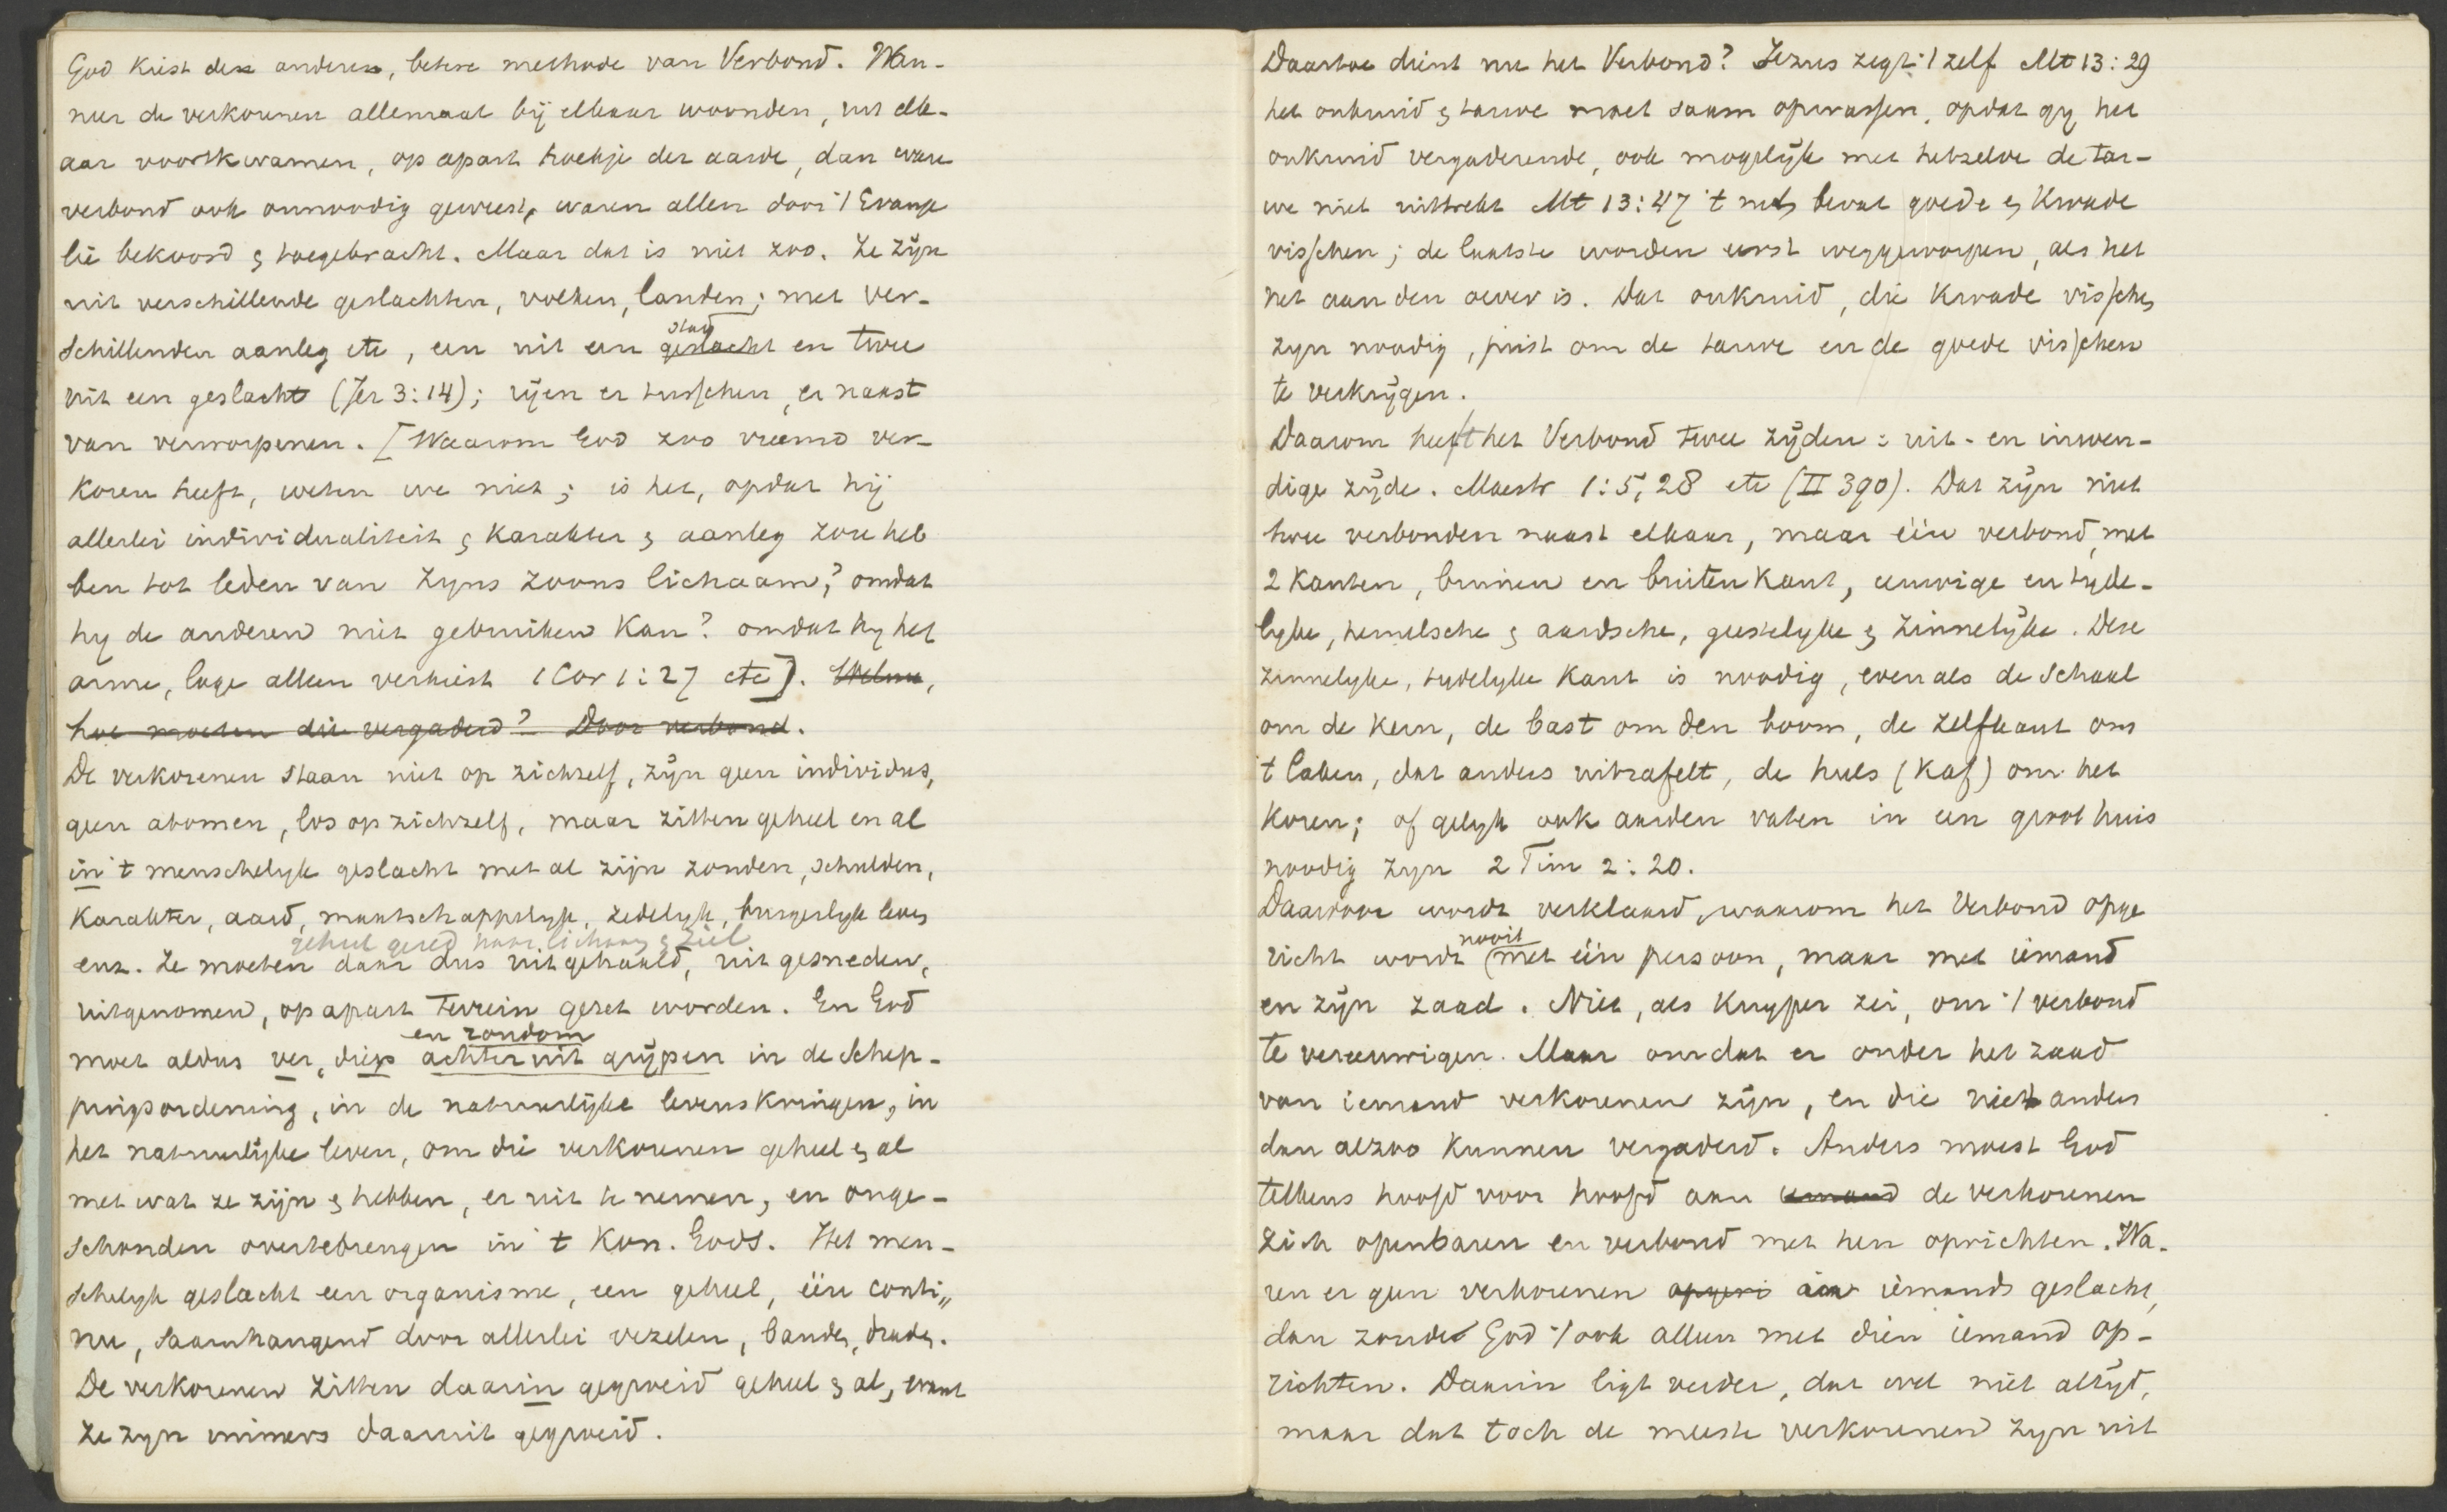 God kiest den anderen, betere methode van Verbond. Wan-
neer de verkorenen allemaal bij elkaar woonden, uit elk-
aar voortkwamen, op apart hoekje der aarde, dan ware
verbond ook onnoodig geweest, waren allen door 't Evange
lie bekoord & toegebracht. Maar dat is niet zoo. Ze zijn
uit verschillende geslachten, volken, landen; met ver-
schillenden aanleg etc, een uit een geslacht en twee
stad
uit een geslacht (Jer 3:14); rijen er tusschen, er naast
van verworpenen. [Waarom God zoo vreemd ver-
koren heeft, weten we niet; is het, opdat hij
allerlei individualiteit & karakter & aanleg zou heb
ben tot leden van zyns zoons lichaam? omdat
hy de anderen niet gebruiken kan? omdat hy het
arme, lage alleen verkiest 1 Cor 1:27 etc]. Welnu,
hoe moeten die vergaderd? Door verbond.
De verkorenen staan niet op zichzelf, zijn geen individus,
geen atomen, los op zichzelf, maar zitten geheel en al
in 't menschelyk geslacht met al zijn zonden, schulden,
karakter, aard, maatschappelyk, zedelyk, burgerlyk leven
geheel gered naar lichaam & ziel
enz. Ze moeten daar dus uitgehaald, uit gesneden,
uitgenomen, op apart terrein gezet worden. En God
en rondom
moet aldus ver, diep achteruit grijpen in de schep-
pingsordening, in de natuurlijke levenskringen, in
het natuurlijke leven, om die verkorenen geheel & al
met wat ze zijn & hebben, er uit te nemen, en onge-
schonden overtebrengen in 't Kon. Gods. Het men-
schelyk geslacht een organisme, een geheel, één conti"
nu, saamhangend door allerlei vezelen, banden, draden.
De verkorenen zitten daarin gegroeid geheel & al, want
ze zyn immers daaruit gegroeid.
Daartoe dient nu het Verbond? Jezus zegt 't zelf Mt 13:29
het onkruid & tarwe moet saam opwassen, opdat gy het
onkruid vergaderende, ook mogelijk met hetzelve de tar-
we niet uittrekt Mt 13:47 't net bevat goede & kwade
visschen; de laatste worden eerst weggeworpen, als het
net aan den oever is. Dat onkruid, die kwade visschen
zyn noodig, juist om de tarwe en de goede visschen
te verkrijgen.
Daarom heeft het Verbond twee zijden: uit- en inwen-
dige zijde. Maestr 1:5, 28 etc (II 390). Dat zijn niet
twee verbonden naast elkaar, maar één verbond, met
2 kanten, binnen en buitenkant, eeuwige en tyde-
lyke, hemelsche & aardsche, geestelyke & zinnelijke. Deze
zinnelyke, tydelyke kant is noodig, even als de schaal
om de kern, de bast om den boom, de zelfkant om
't laken, dat anders uitrafelt, de huls (kaf) om het
koren; of gelyk ook aarden vaten in een groot huis
noodig zyn 2 Tim 2:20.
Daardoor wordt verklaard, waarom het Verbond opge
nooit
richt wordt met één persoon, maar met iemand
en zijn zaad. Niet, als Kuyper zei, om 't verbond
te vereeuwigen. Maar omdat er onder het zaad
van iemand verkorenen zijn, en die niet anders
dan alzoo kunnen vergaderd. Anders moest God
telkens hoofd voor hoofd aan iemand de verkorenen
zich openbaren en verbond met hen oprichten. Wa-
ren er geen verkorenen in iemands geslacht,
dan zoude God 't ook alleen met dien iemand op-
richten. Daarin ligt verder, dat wel niet altijd,
maar dat toch de meeste verkorenen zyn uit